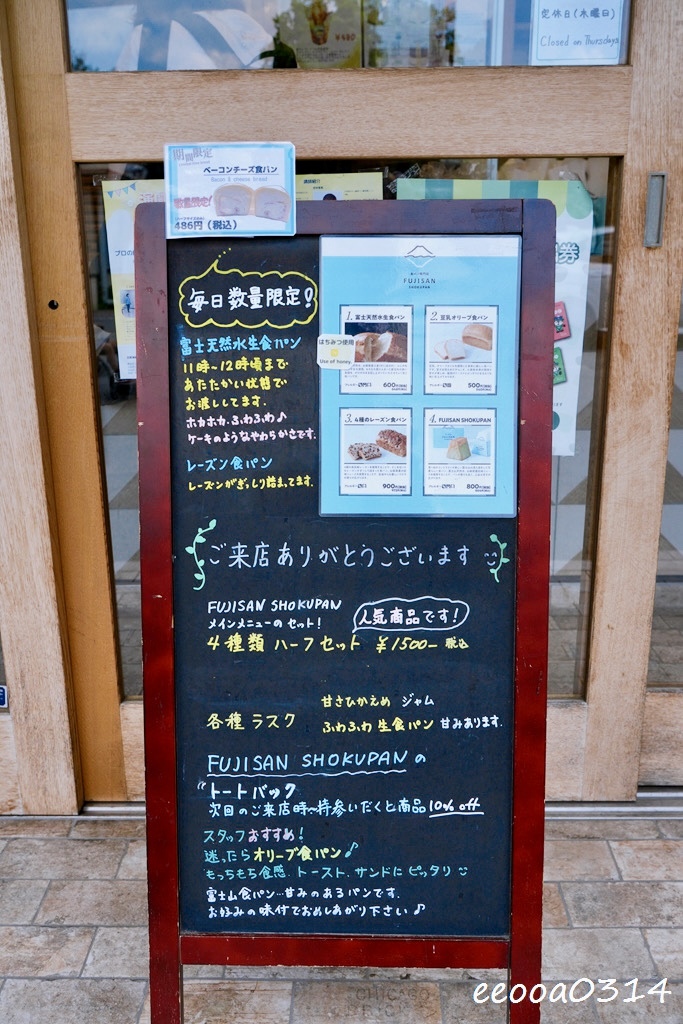 定休日(木曜日)
Closed on Thursdays
期間限定
ベーコンチーズ食パン
Bacon & cheese bread
数量限定!
486円(税込)
毎日数量限定!
富士天然水生食パン
11時~12時頃まで
あたたかい状態で
お渡ししてます。
ホカホカ、ふわふわ♪
ケーキのようなやわらかさです。
レーズン食パン
レーズンがぎっしり詰まってます。
FUJISAN
SHOKUPAN
1. 富士天然水生食パン
はちみつ使用
Use of honey
600円
2. 豆乳オリーブ食パン
500円
3. 4種のレーズン食パン
900円
4. FUJISAN SHOKUPAN
800円
ご来店ありがとうございます
FUJISAN SHOKUPAN
メインメニューのセット!
人気商品です!
4種類 ハーフセット ¥1500- 税込
各種ラスク
甘さひかえめ ジャム
ふわふわ 生食パン 甘みあります。
FUJISAN SHOKUPANの
トートバック
次回のご来店時~持参いだくと商品10% off
スタッフおすすめ!
迷ったらオリーブ食パン♪
もっちもち食感、トースト、サンドにピッタリ
富士山食パン…甘みのあるパンです。
お好みの味付でおめしあがり下さい♪
eeooa0314